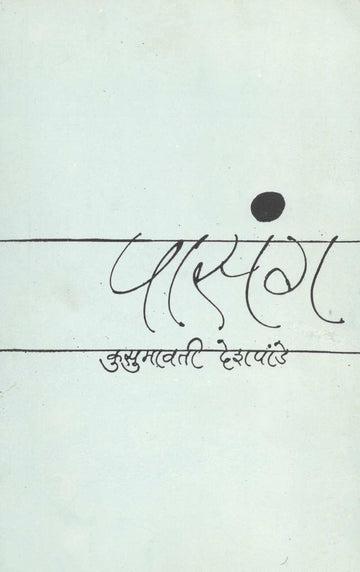 पासंग
कुसुमावती देशपांडे